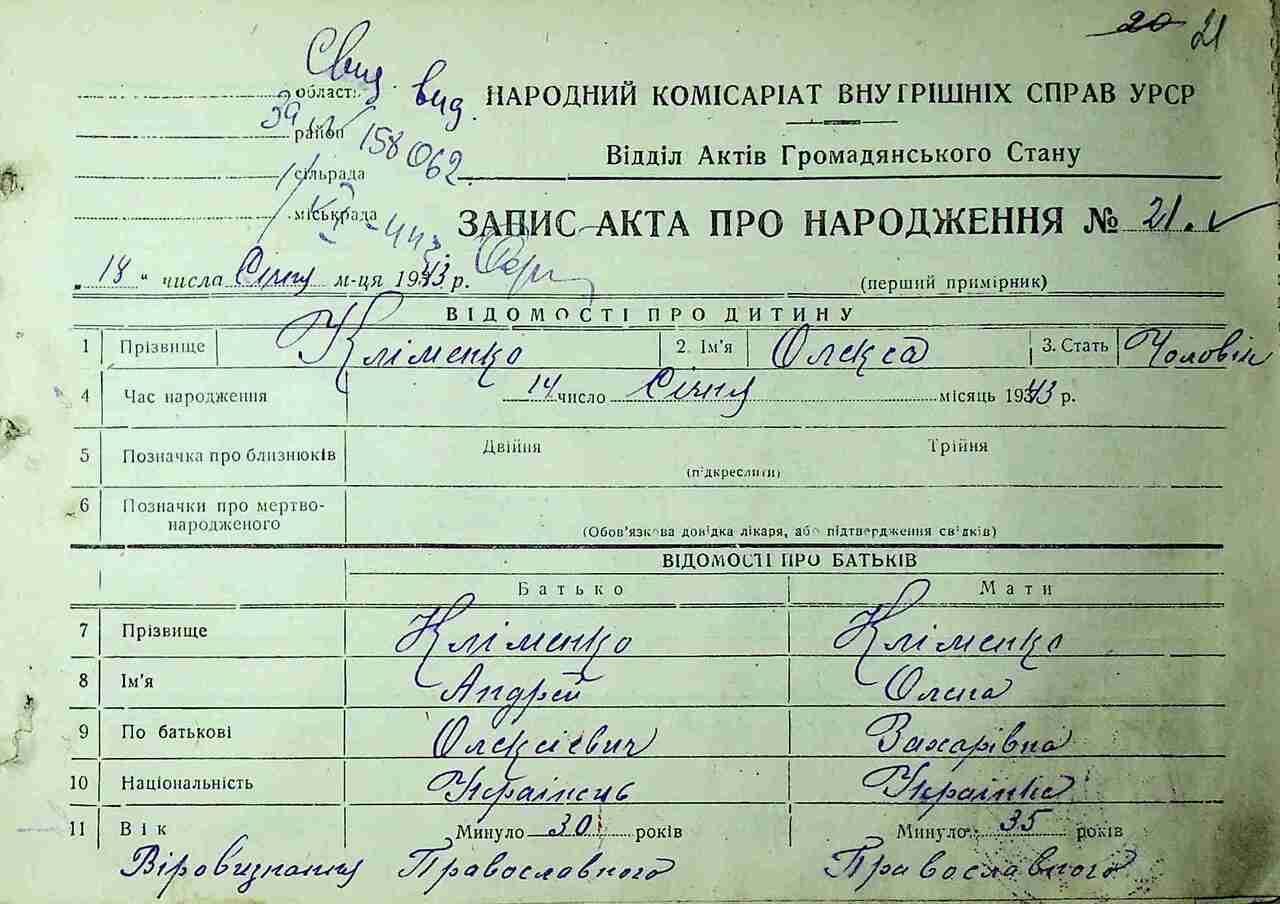 20 21
Свид. вид.
області НАРОДНИЙ КОМІСАРІАТ ВНУТРІШНІХ СПРАВ УРСР
район 158062
Відділ Актів Громадянського Стану
сільрада
міськрада ЗАПИС АКТА ПРО НАРОДЖЕННЯ № 21.
„18“ числа Січня м-ця 1943 р. (перший примірник)
ВІДОМОСТІ ПРО ДИТИНУ
1 Прізвище Кліменко 2. Ім'я Олекса 3. Стать Чоловік
4 Час народження 14 число Січня місяць 1943 р.
5 Позначка про близнюків Двійня Трійня
(підкреслити)
6 Позначки про мертво-
народженого (Обов'язкова довідка лікаря, або підтвердження свідків)
ВІДОМОСТІ ПРО БАТЬКІВ
Батько Мати
7 Прізвище Кліменко Кліменко
8 Ім'я Андрей Олена
9 По батькові Олексієвич Захарівна
10 Національність Українець Українка
11 Вік Минуло 30 років Минуло 35 років
Віровизнання Православного Православного